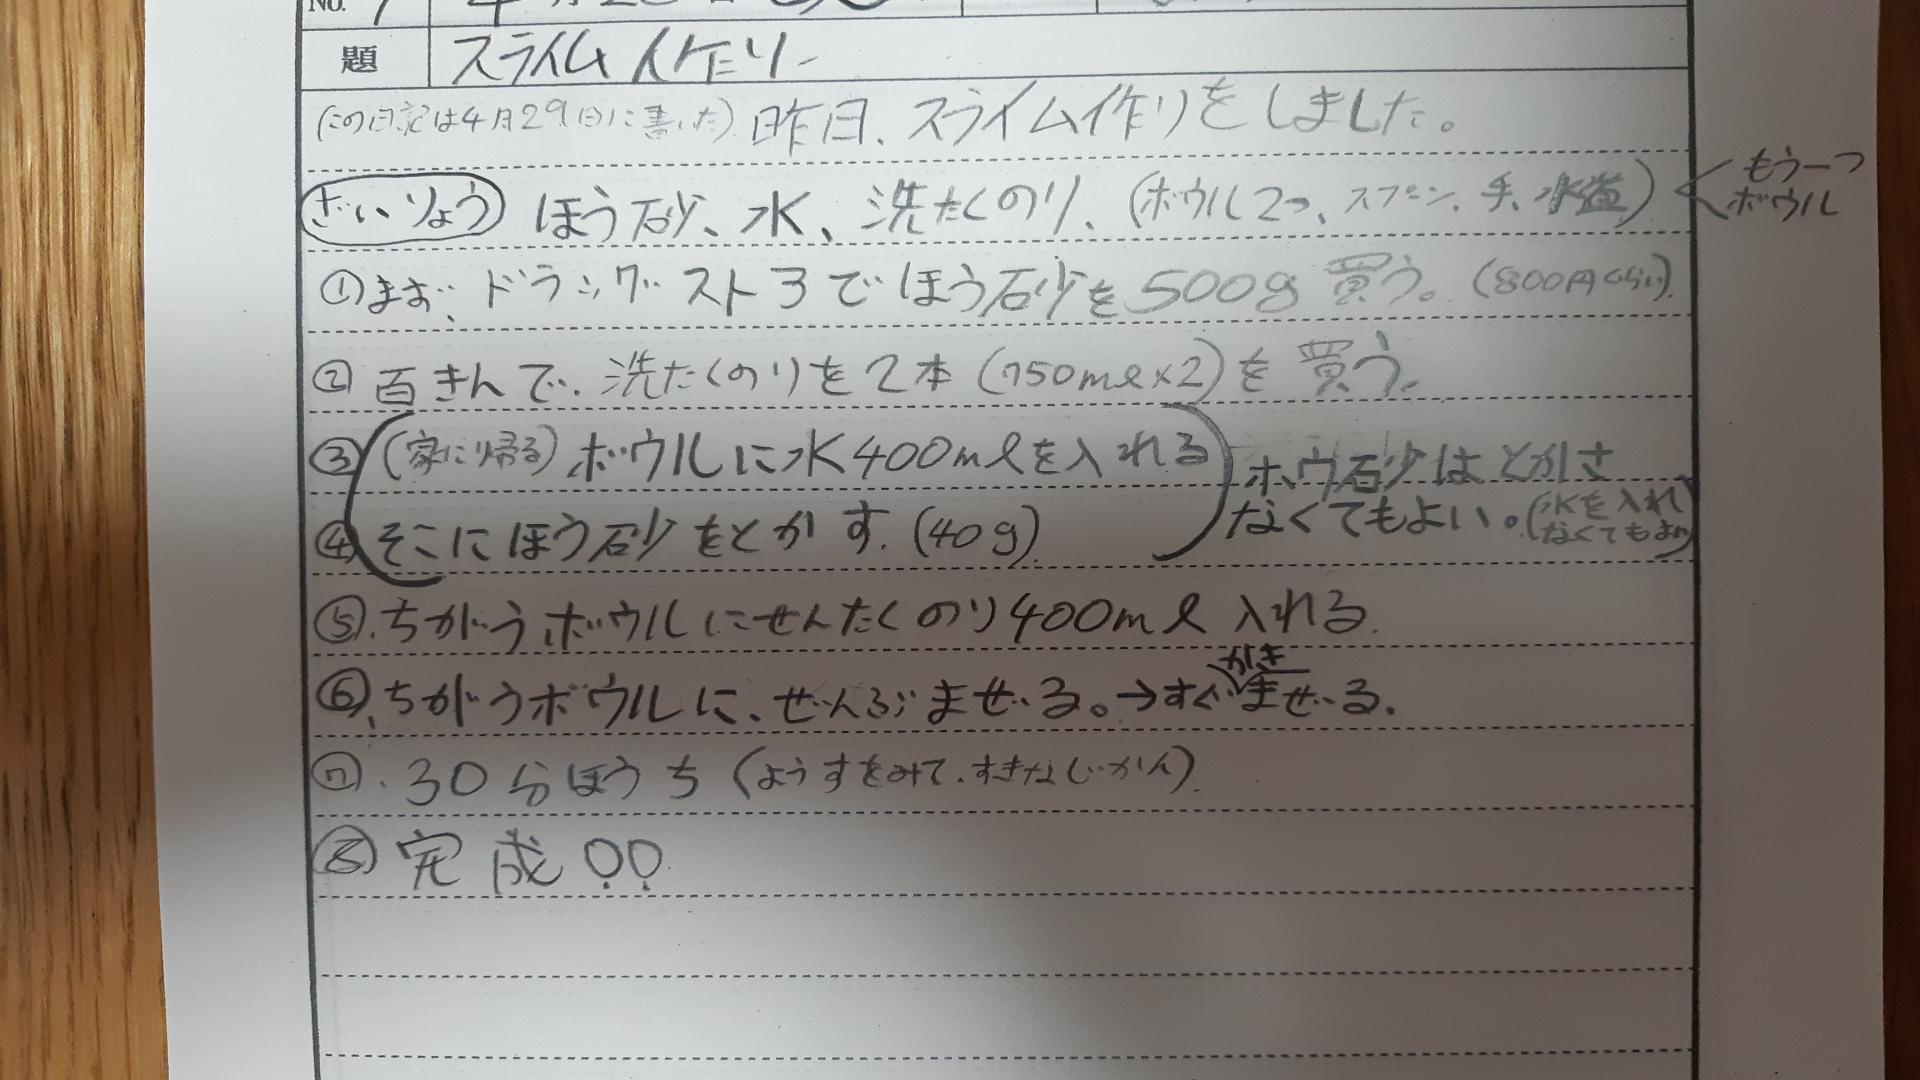 No.
題 スライム作り
(この日記は4月29日に書いた) 昨日、スライム作りをしました。
ざいりょう ほう砂、水、洗たくのり、(ボウル2つ、スプーン、手、水道)
もう一つ
ボウル
①まず、ドラッグストアでほう砂を500g買う。(800円くらい)
②百きんで、洗たくのりを2本(750ml×2)を買う。
③(家に帰る)ボウルに水400mlを入れる
ホウ砂はとかさ
④そこにほう砂をとかす。(40g)
なくてもよい。(水を入れ
なくてもよい)
⑤.ちがうボウルにせんたくのり400ml入れる.
⑥、ちがうボウルに、ぜんぶまぜる。→すぐかきまぜる.
⑦.30分ほうち(ようすをみて.すきなじかん).
⑧完成!!